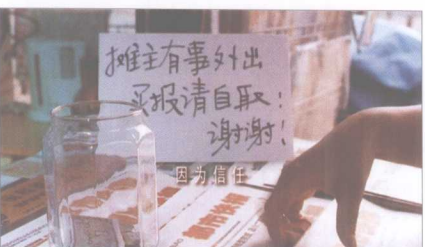 摊主有事外出
买报请自取!
谢谢!
因为信任